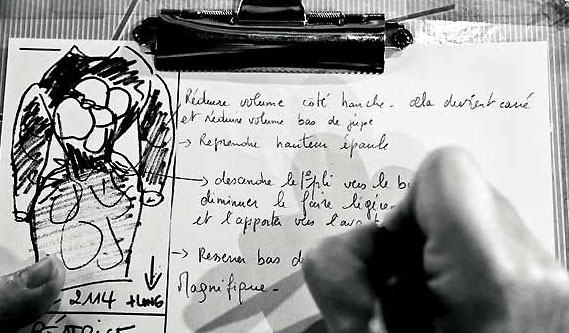 Réduire volume côté hanche - cela devient carré
et réduire volume bas de jupe
→ Reprendre hauteur épaule
→ descendre le 1er pli vers le b
diminuer le faire légère
et l'apporter vers l'ava
→ Resserrer bas d
Magnifique -
2114 +LONG
BÉATRICE